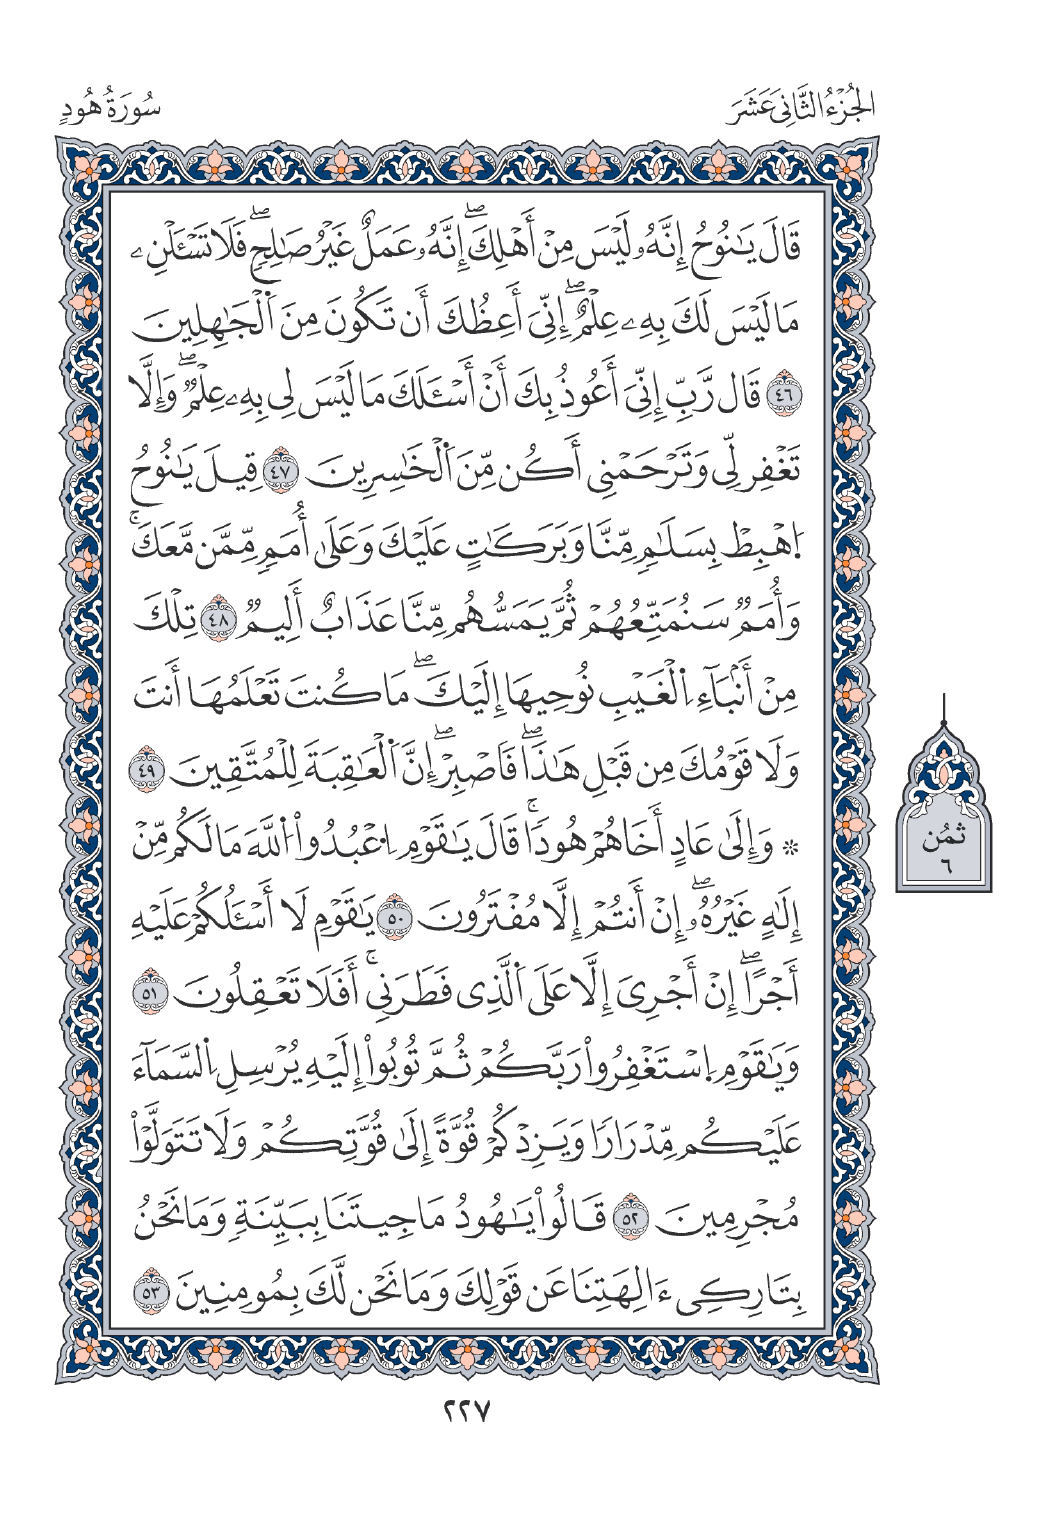 الجُزْءُ الثَّانِيَ عَشَرَ
سُورَةُ هُودٍ
قَالَ يَٰنُوحُ إِنَّهُۥ لَيْسَ مِنْ أَهْلِكَۖ إِنَّهُۥ عَمَلٌ غَيْرُ صَٰلِحٖۖ فَلَا تَسْـَٔلْنِۦ
مَا لَيْسَ لَكَ بِهِۦ عِلْمٌۖ إِنِّيَ أَعِظُكَ أَن تَكُونَ مِنَ اَ۬لْجَٰهِلِينَ
٤٦ قَالَ رَبِّ إِنِّيَ أَعُوذُ بِكَ أَنْ أَسْـَٔلَكَ مَا لَيْسَ لِي بِهِۦ عِلْمٞۖ وَإِلَّا
تَغْفِرْ لِي وَتَرْحَمْنِي أَكُن مِّنَ اَ۬لْخَٰسِرِينَ ٤٧ قِيلَ يَٰنُوحُ
اُ۪هْبِطْ بِسَلَٰمٖ مِّنَّا وَبَرَكَٰتٍ عَلَيْكَ وَعَلَىٰ أُمَمٖ مِّمَّن مَّعَكَۚ
وَأُمَمٞ سَنُمَتِّعُهُمْ ثُمَّ يَمَسُّهُم مِّنَّا عَذَابٌ أَلِيمٞ ٤٨ تِلْكَ
مِنْ أَنۢبَآءِ اِ۬لْغَيْبِ نُوحِيهَا إِلَيْكَۖ مَا كُنتَ تَعْلَمُهَا أَنتَ
وَلَا قَوْمُكَ مِن قَبْلِ هَٰذَاۖ فَاصْبِرْۖ إِنَّ اَ۬لْعَٰقِبَةَ لِلْمُتَّقِينَ ٤٩
۞ وَإِلَىٰ عَادٍ أَخَاهُمْ هُودٗاۚ قَالَ يَٰقَوْمِ اِ۟عْبُدُواْ اُ۬للَّهَ مَا لَكُم مِّنْ
إِلَٰهٍ غَيْرُهُۥۖ إِنْ أَنتُمْ إِلَّا مُفْتَرُونَ ٥٠ يَٰقَوْمِ لَا أَسْـَٔلُكُمْ عَلَيْهِ
أَجْرًاۖ إِنْ أَجْرِيَ إِلَّا عَلَى اَ۬لَّذِي فَطَرَنِيۚ أَفَلَا تَعْقِلُونَ ٥١
وَيَٰقَوْمِ اِ۪سْتَغْفِرُواْ رَبَّكُمْ ثُمَّ تُوبُواْ إِلَيْهِ يُرْسِلِ اِ۬لسَّمَآءَ
عَلَيْكُم مِّدْرَارٗا وَيَزِدْكُمْ قُوَّةً إِلَىٰ قُوَّتِكُمْ وَلَا تَتَوَلَّوْاْ
مُجْرِمِينَ ٥٢ قَالُواْ يَٰهُودُ مَا جِيتَنَا بِبَيِّنَةٖ وَمَا نَحْنُ
بِتَارِكِي ءَالِهَتِنَا عَن قَوْلِكَ وَمَا نَحْنُ لَكَ بِمُومِنِينَ ٥٣
ثُمُن
٦
٢٢٧